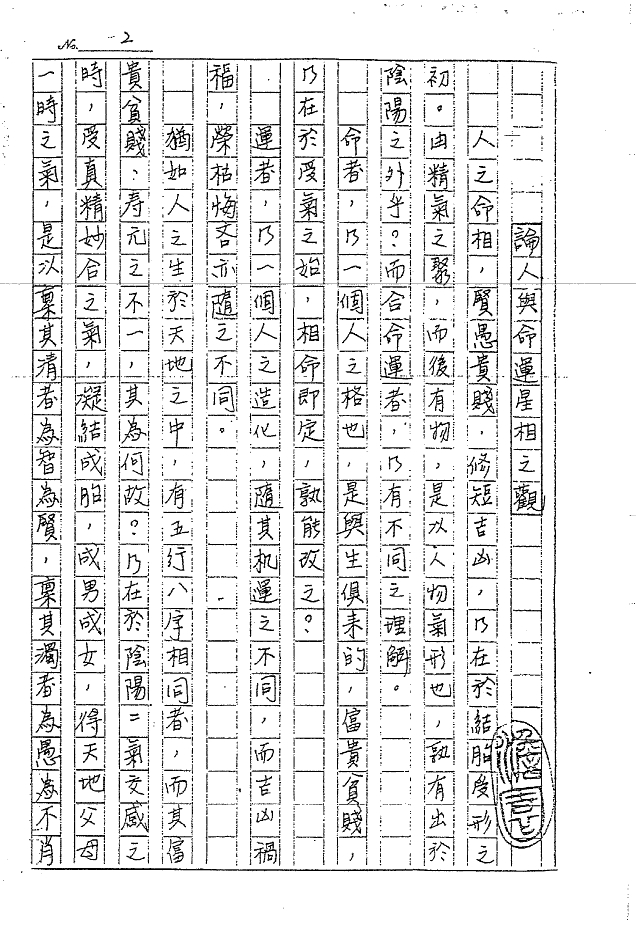 No. 2
論人與命運星相之觀
人之命相，賢愚貴賤，修短吉凶，乃在於結胎受形之
初。由精氣之聚，而後有物，是以人物氣形也，孰有出於
陰陽之外乎？而合命運者，乃有不同之理解。
命者，乃一個人之格也，是與生俱來的，富貴貧賤，
乃在於受氣之始，相命即定，孰能改之？
運者，乃一個人之造化，隨其机運之不同，而吉凶禍
福，榮枯悔吝亦隨之不同。
猶如人之生於天地之中，有五行八字相同者，而其富
貴貧賤、寿元之不一，其為何故？乃在於陰陽二氣交感之
時，受真精妙合之氣，凝結成胎，成男成女，得天地父母
一時之氣，是以稟其清者為智為賢，稟其濁者為愚為不肖